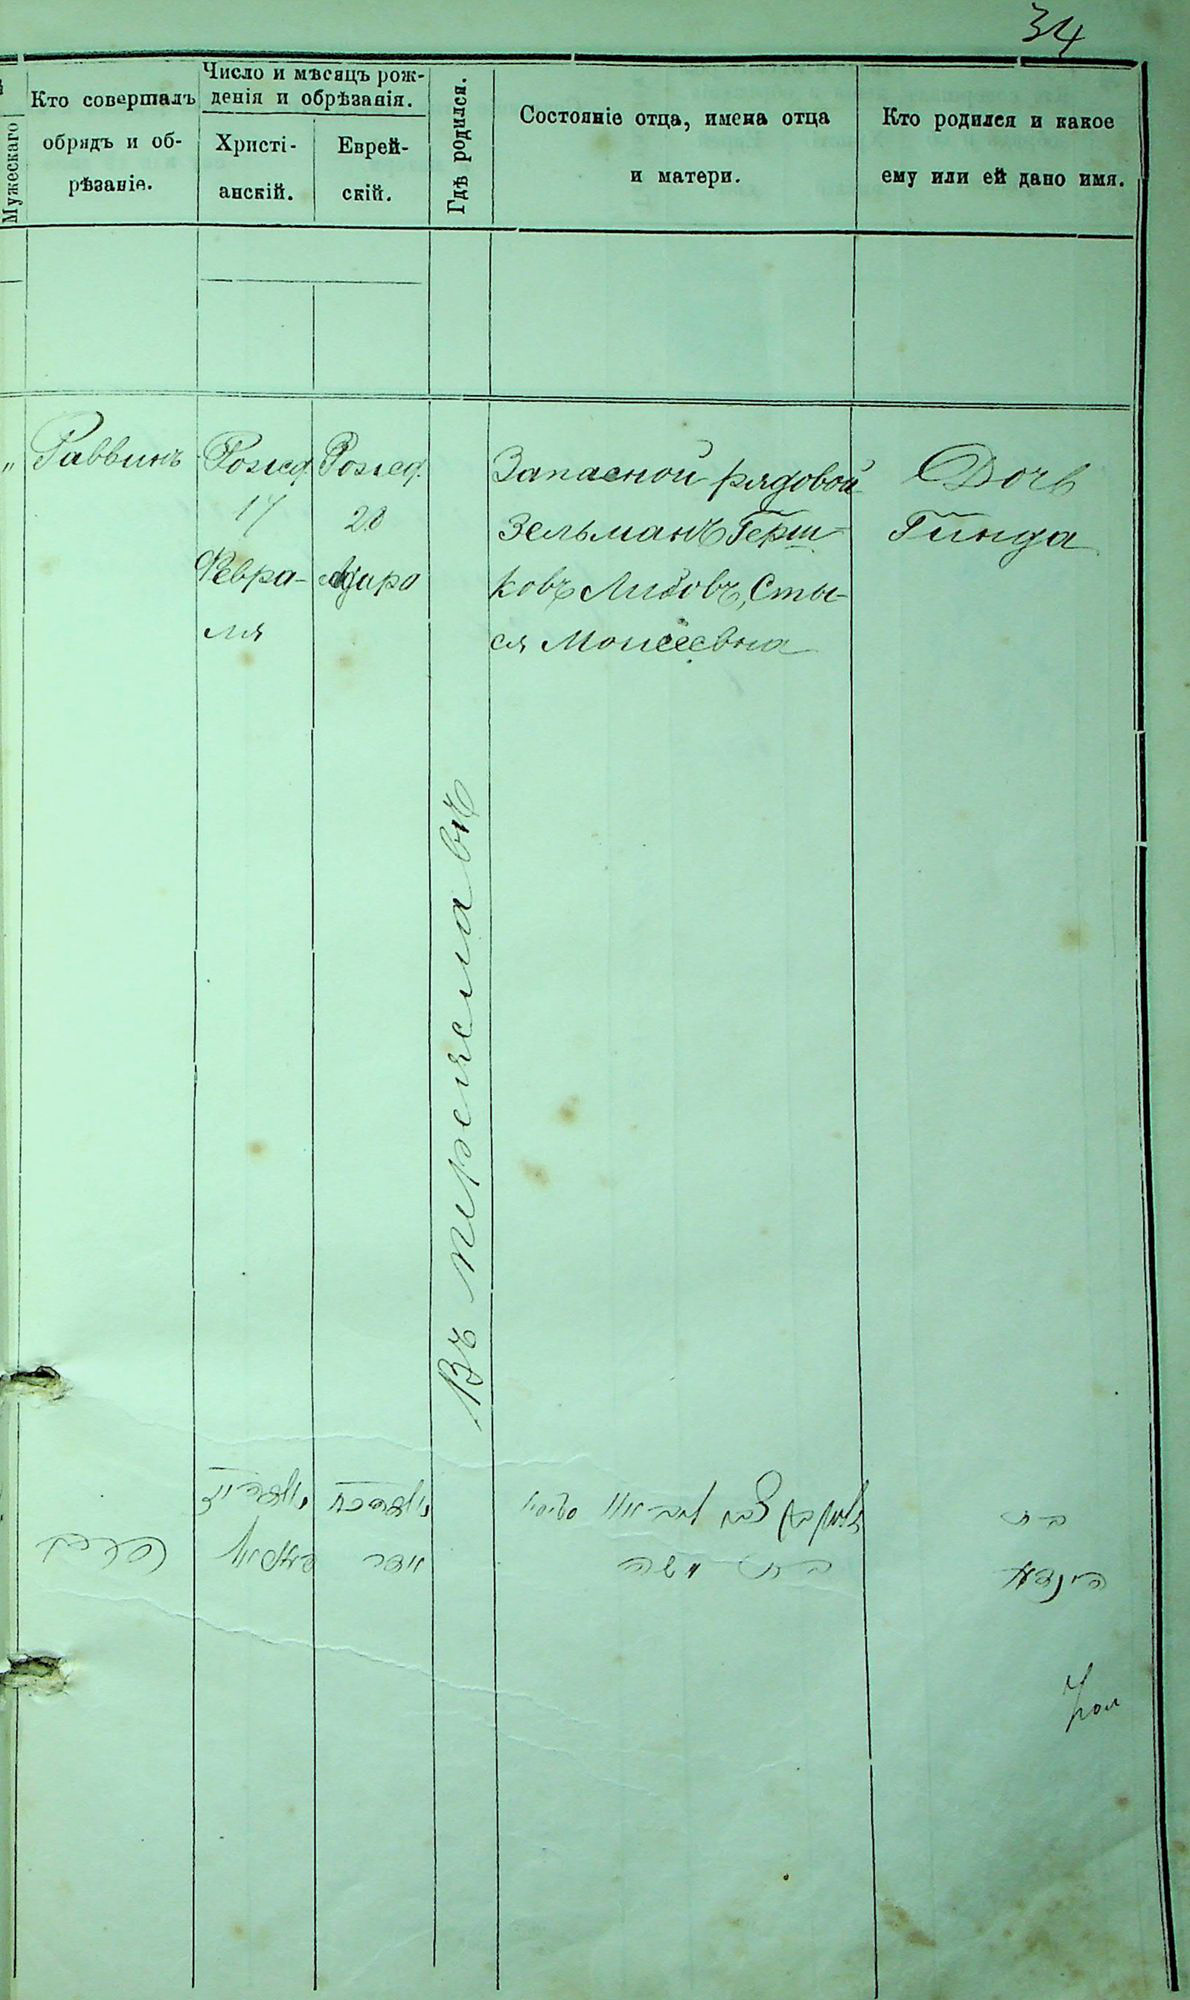 34
Мужескаго
Кто совершалъ
обрядъ и об-
рѣзаніе.
Число и мѣсяцъ рож-
денія и обрѣзанія.
Христі-
анскій.
Еврей-
скій.
Гдѣ родился.
Состояніе отца, имена отца
и матери.
Кто родился и какое
ему или ей дано имя.
"
Раввинъ
Рожд.
17
Февра-
ля
Рожд.
28
Адара
Въ Переяславѣ
Запасной рядовой
Зельманъ Герш-
ковъ Либовъ, Сты-
ся Моисеевна
Дочь
Гинда
בת
הינדא
בת משה
אדר